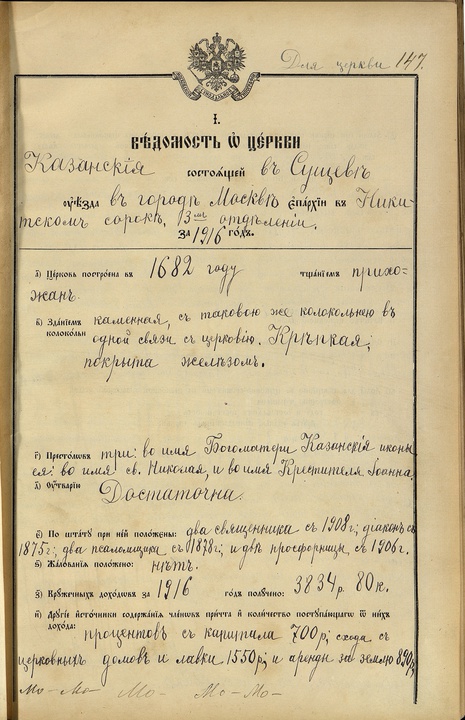 Для церкви 147.
І.
Вѣдомость ѡ церкви
Казанскія состоящей въ Сущевѣ
оуѣзда въ городѣ Москвѣ єпархїи въ Ники-
тскомъ сорокѣ, 3мъ отдѣленіи.
за 1916 годъ.
а) Церковь построена въ 1682 году тщанїемъ прихо-
жанъ.
в) Зданїемъ каменная, съ таковою же колокольнею въ
колокольни одной связи съ церковію. Крѣпкая;
покрыта желѣзомъ.
г) Престоловъ три: во имя Богоматери Казанскія иконы
ея: во имя св. Николая, и во имя Крестителя Іоанна.
д) Оутварїю Достаточна.
є) По штату при ней положены: два священники съ 1908 г.; діаконъ съ
1875 г.; два псаломщика съ 1878 г; и двѣ просфорницы, съ 1906 г.
Жалованья положено: нѣтъ.
з) Кружечныхъ доходовъ за 1916 годъ получено: 3834 р. 80 к.
и) Другіе источники содержанїя членовъ причта и количество поступающагѡ ѿ нихъ
дохода: процентовъ съ капитала 700 р; схода съ
церковныхъ домовъ и лавки 1550 р; и аренды за землю 820 р;
Мо- Мо- Мо- Мо- Мо-